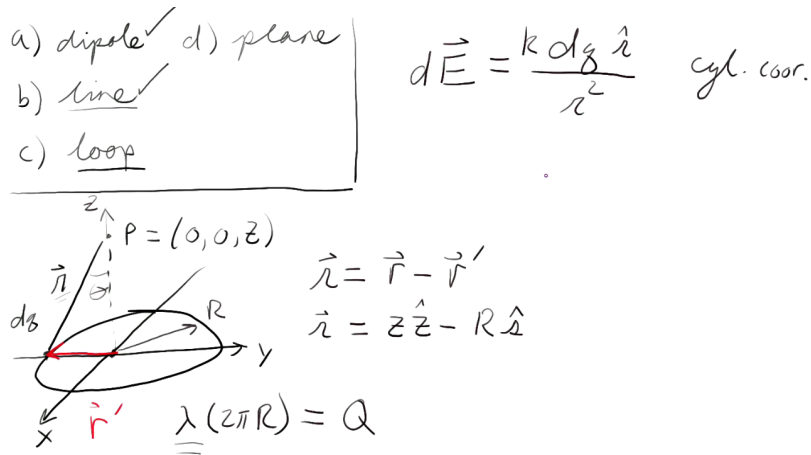 a) dipole ✓ d) plane
b) line ✓
c) loop
d\vec{E} = \frac{k dq \hat{r}}{r^2} cyl. coor.
z
P = (0, 0, z)
\vec{r}
θ
dq
R
y
x
\vec{r}'
\vec{r} = \vec{r} - \vec{r}'
\vec{r} = z\hat{z} - R\hat{s}
λ(2πR) = Q